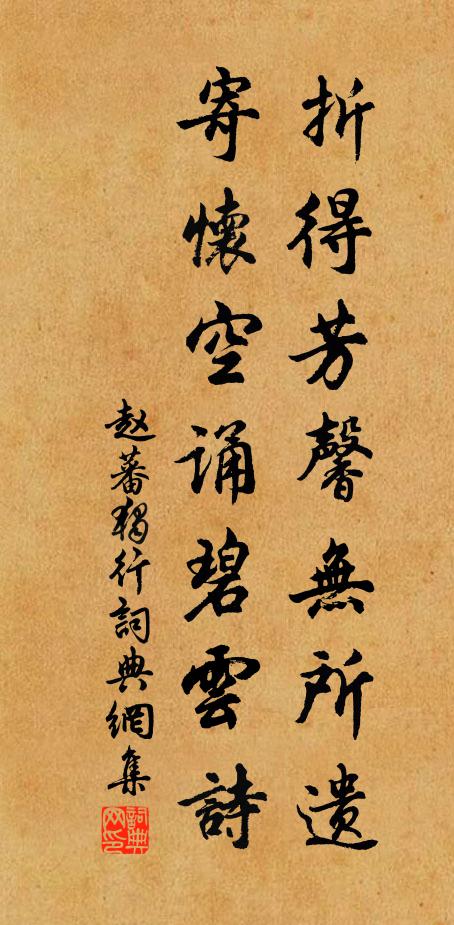 折得芳馨無所遗
寄懷空诵碧雲詩
赵蕃獨行詞典網集
詞典网印